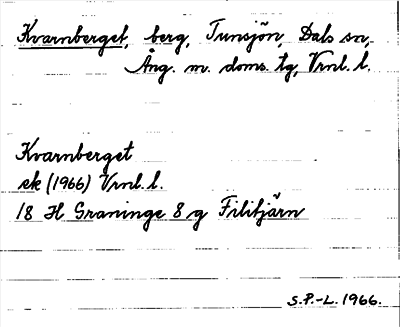 Kvarnberget, berg, Tunsjön, Dals sn,
Ång. m. doms. tg, Vrnl. l.
Kvarnberget
ek (1966) Vrnl. l.
18 H Graninge 8 g Filitjärn
S.P.-L. 1966.